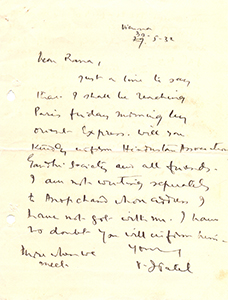 Vienna
29-5-32
Dear Rana,
Just a line to say
that I shall be reaching
Paris friday morning by
orient Express. will you
kindly inform Hindustan Association
Gandhi Society and all friends.
I am not writing separately
to Anopchand whose address I
have not got with me. I have
no doubt you will inform him.
More when we
meet
Yours
V. J Patel